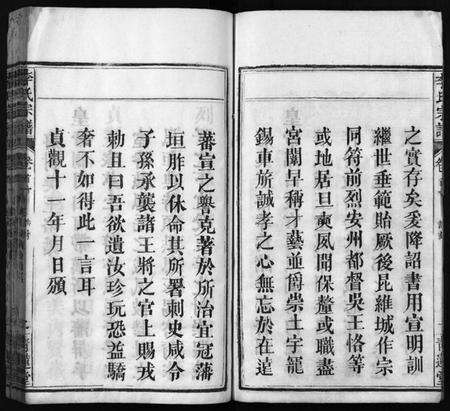 之實存矣爰降詔書用宣明訓
繼世垂範貽厥後昆維城作宗
同符前烈安州都督吳王恪等
或地居旦奭夙聞保釐或職盡
宮闈早稱才藝並爵崇土宇寵
錫車旂誠孝之心無忘於在遠
蕃宣之譽克著於所治宜冠藩
垣胙以休命其所署刺史咸令
子孫承襲諸王將之官上賜戎
勅且曰吾欲遺汝珍玩恐益驕
奢不如得此一言耳
貞觀十一年月日頒
李氏宗譜
李氏宗譜